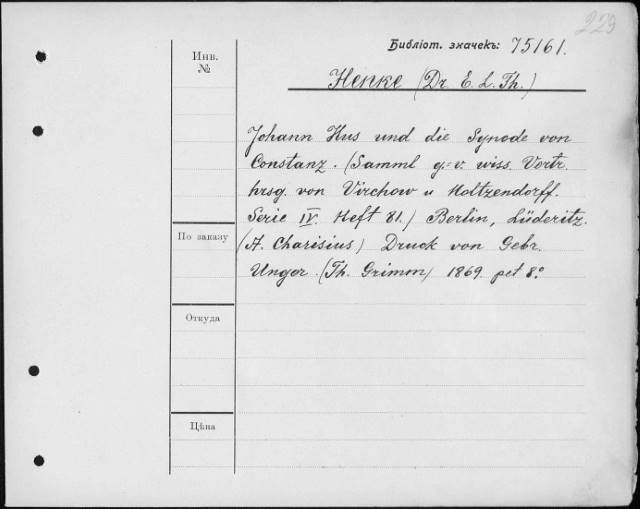 223
Библіот. значекъ: 75161.
Инв.
№
Henke (Dr E. L. Th.)
Johann Hus und die Synode von
Constanz. (Samml g:-v. wiss. Vortr.
hrsg. von Virchow u Holtzendorff.
Serie IV. Heft 81.) Berlin, Lüderitz.
По заказу
(A. Charisius) Druck von Gebr.
Unger. (Th. Grimm) 1869. pet 8.°
Откуда
Цѣна